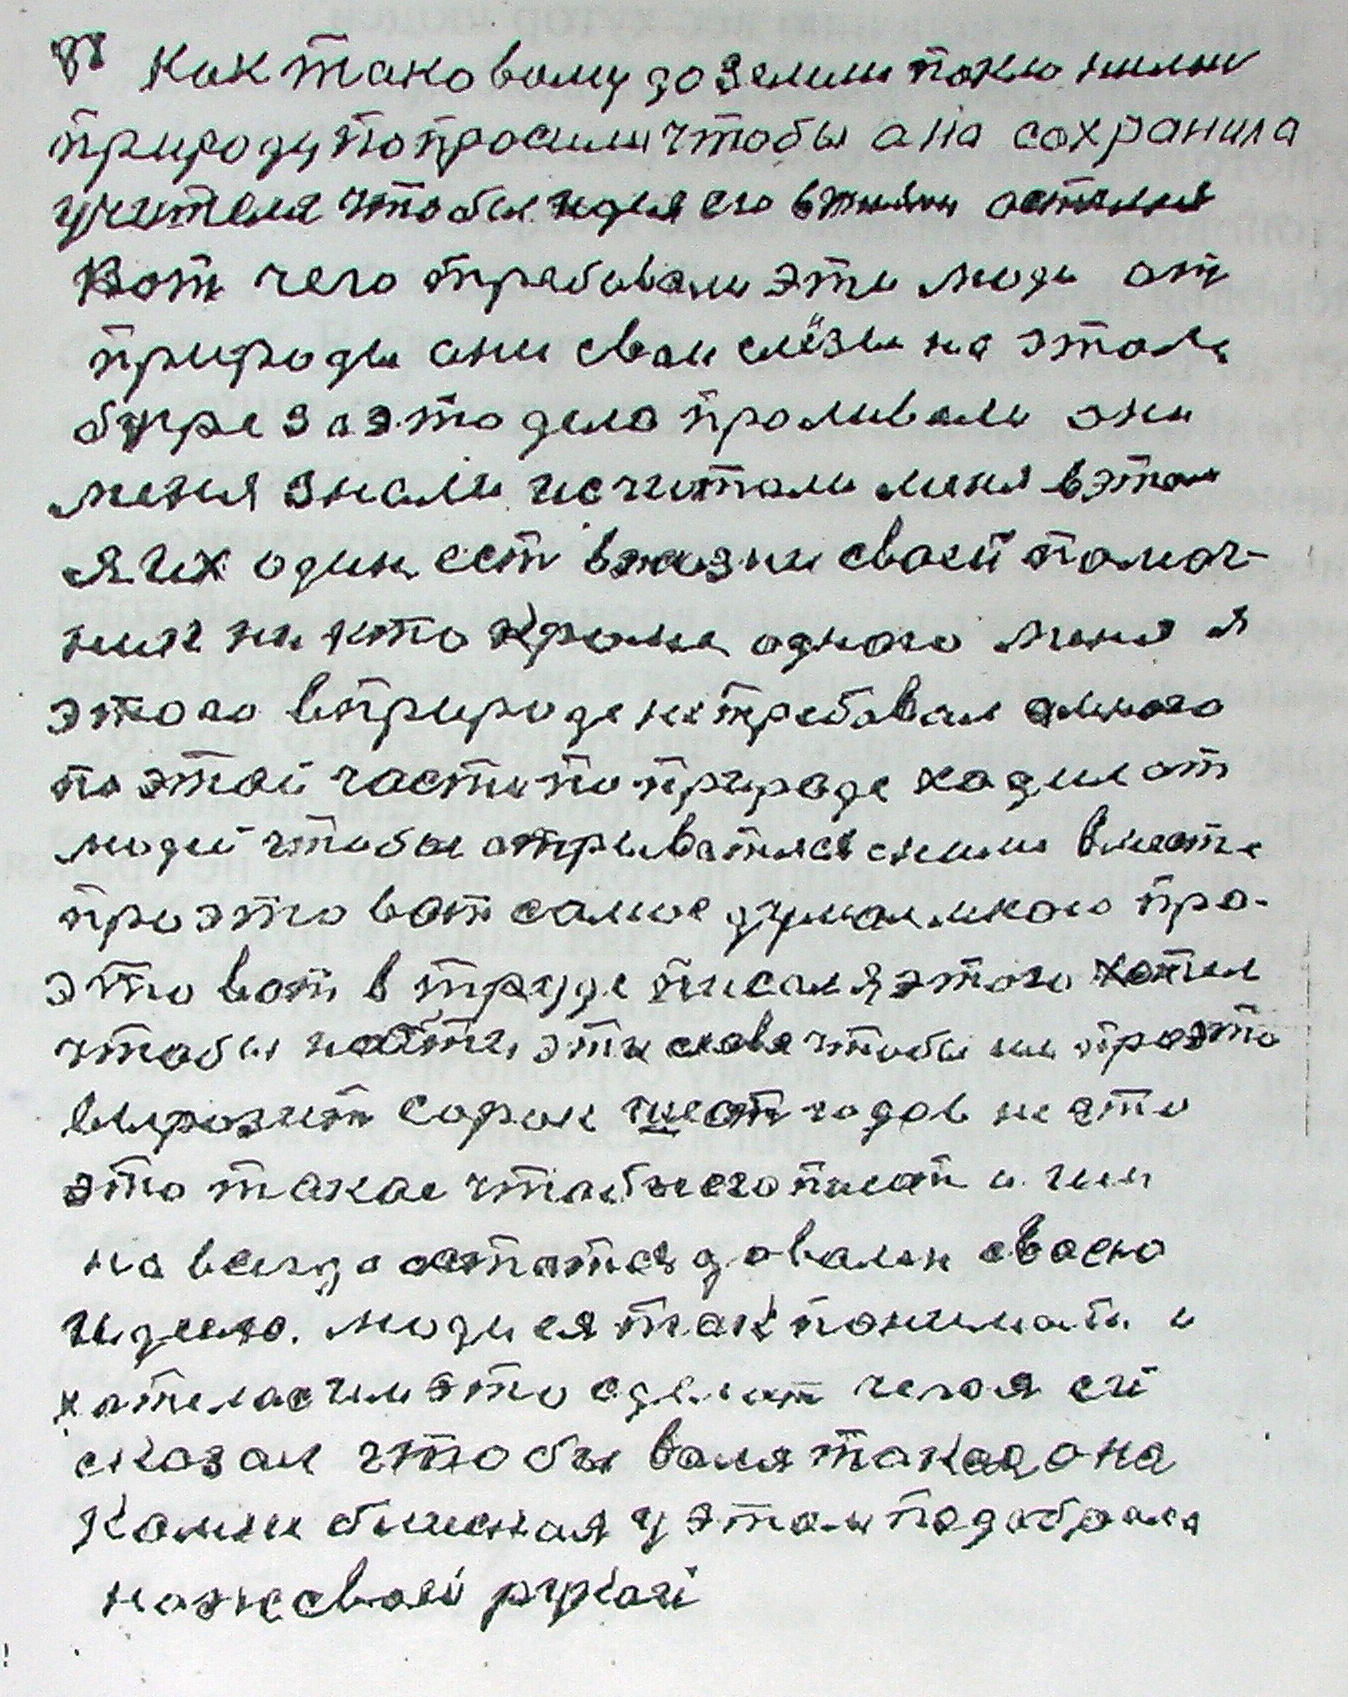 Как таковому до земли поклонили
природу попросили чтобы ана сохранила
учителя чтобы идея его в жизни
Вот чего требовали эти люди от
природы они сваи слёзы на этом
бугре за это дело проливали они
меня знали и считали меня в этом
я их один ест в жизни своей помоч-
ник ни кто кроме одного меня я
этого в природе не требовал
по этой части по природе хадил от
людей чтобы с ними вместе
про это вот самое думал много про-
это вот в труде писал я этого хотел
чтобы эти слова чтобы
выразит сорок шест годов не это
это такое
на всегда остатся доволен своею
идеею. люди ея так понимали и
хателас им это сделат чего я ей
сказал чтобы валя такая она
Камни у этом подобрала
на же своей рукай